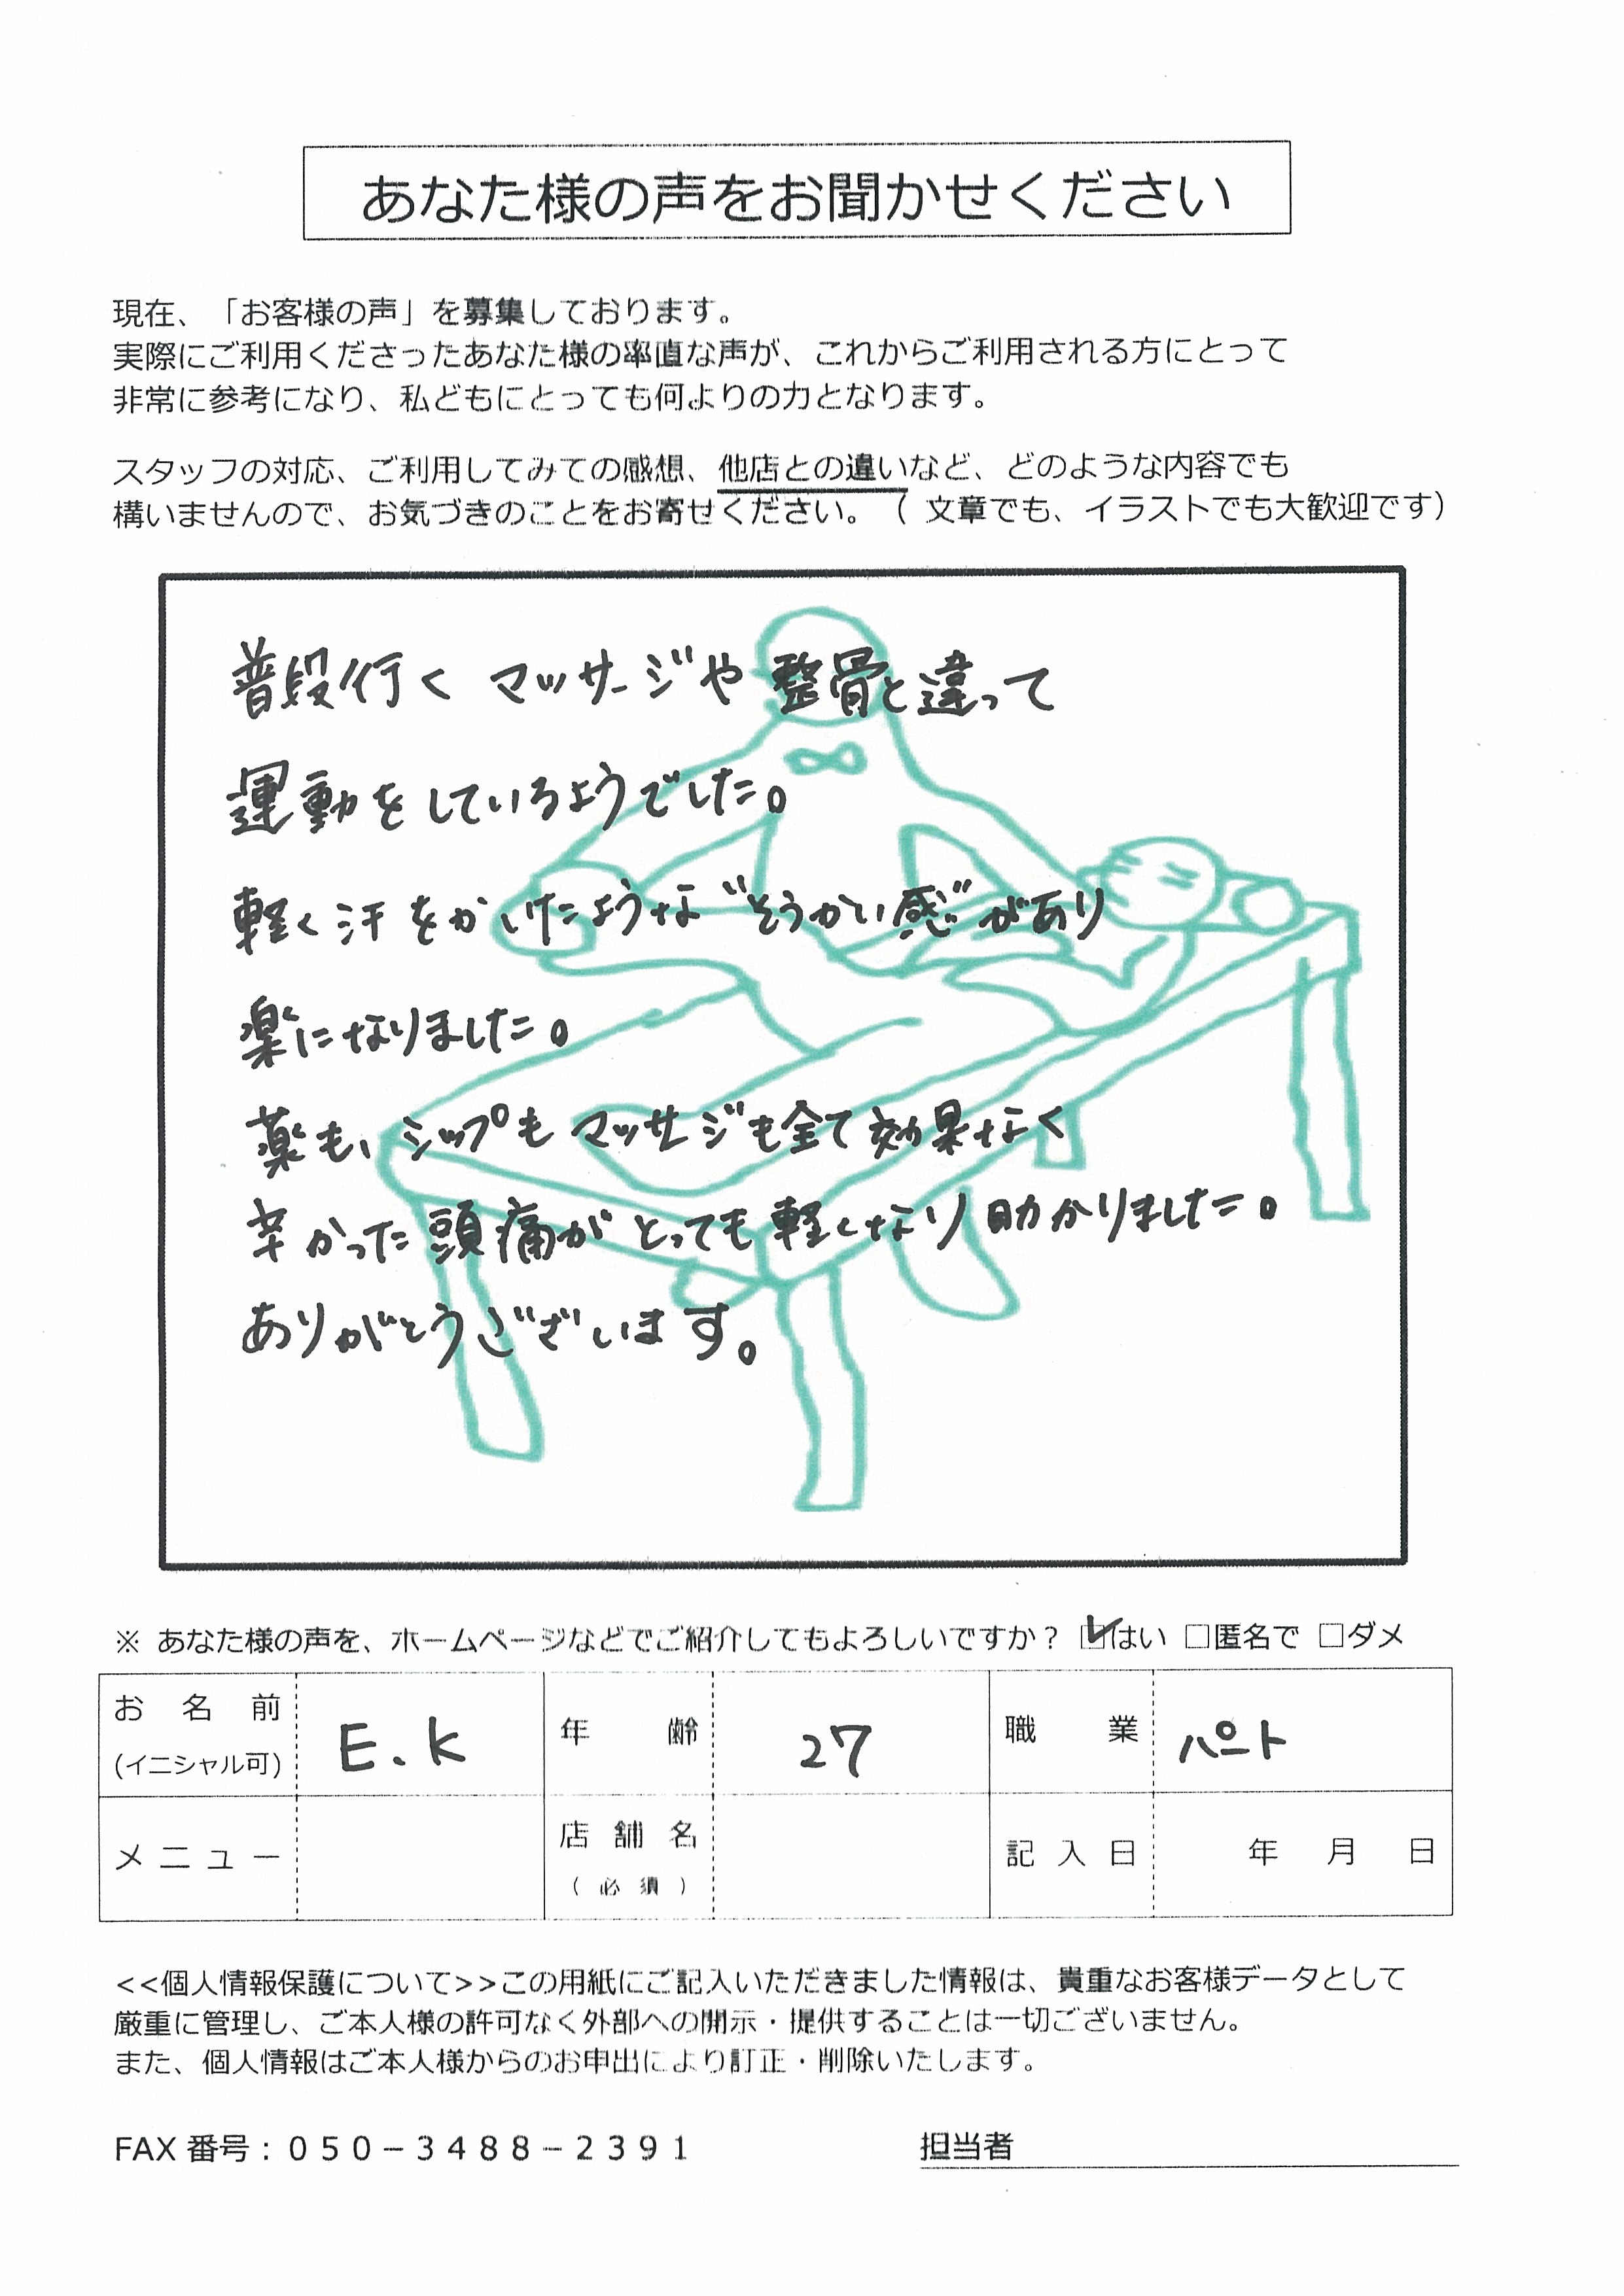 あなた様の声をお聞かせください
現在、「お客様の声」を募集しております。
実際にご利用くださったあなた様の率直な声が、これからご利用される方にとって
非常に参考になり、私どもにとっても何よりの力となります。
スタッフの対応、ご利用してみての感想、他店との違いなど、どのような内容でも
構いませんので、お気づきのことをお寄せください。（ 文章でも、イラストでも大歓迎です）
普段行く マッサージや 整骨と違って
運動をしているようでした。
軽く汗をかいたような"そうかい感"があり
楽になりました。
薬も、シップも マッサージも全て効果なく
辛かった頭痛がとっても軽くなり助かりました。
ありがとうございます。
※ あなた様の声を、ホームページなどでご紹介してもよろしいですか？ ☑はい □匿名で □ダメ
お名前 E.K 年齢 27 職業 パート
(イニシャル可)
メニュー 店舗名 記入日 年 月 日
（必須）
<<個人情報保護について>>この用紙にご記入いただきました情報は、貴重なお客様データとして
厳重に管理し、ご本人様の許可なく外部への開示・提供することは一切ございません。
また、個人情報はご本人様からのお申出により訂正・削除いたします。
FAX 番号：０５０－３４８８－２３９１ 担当者